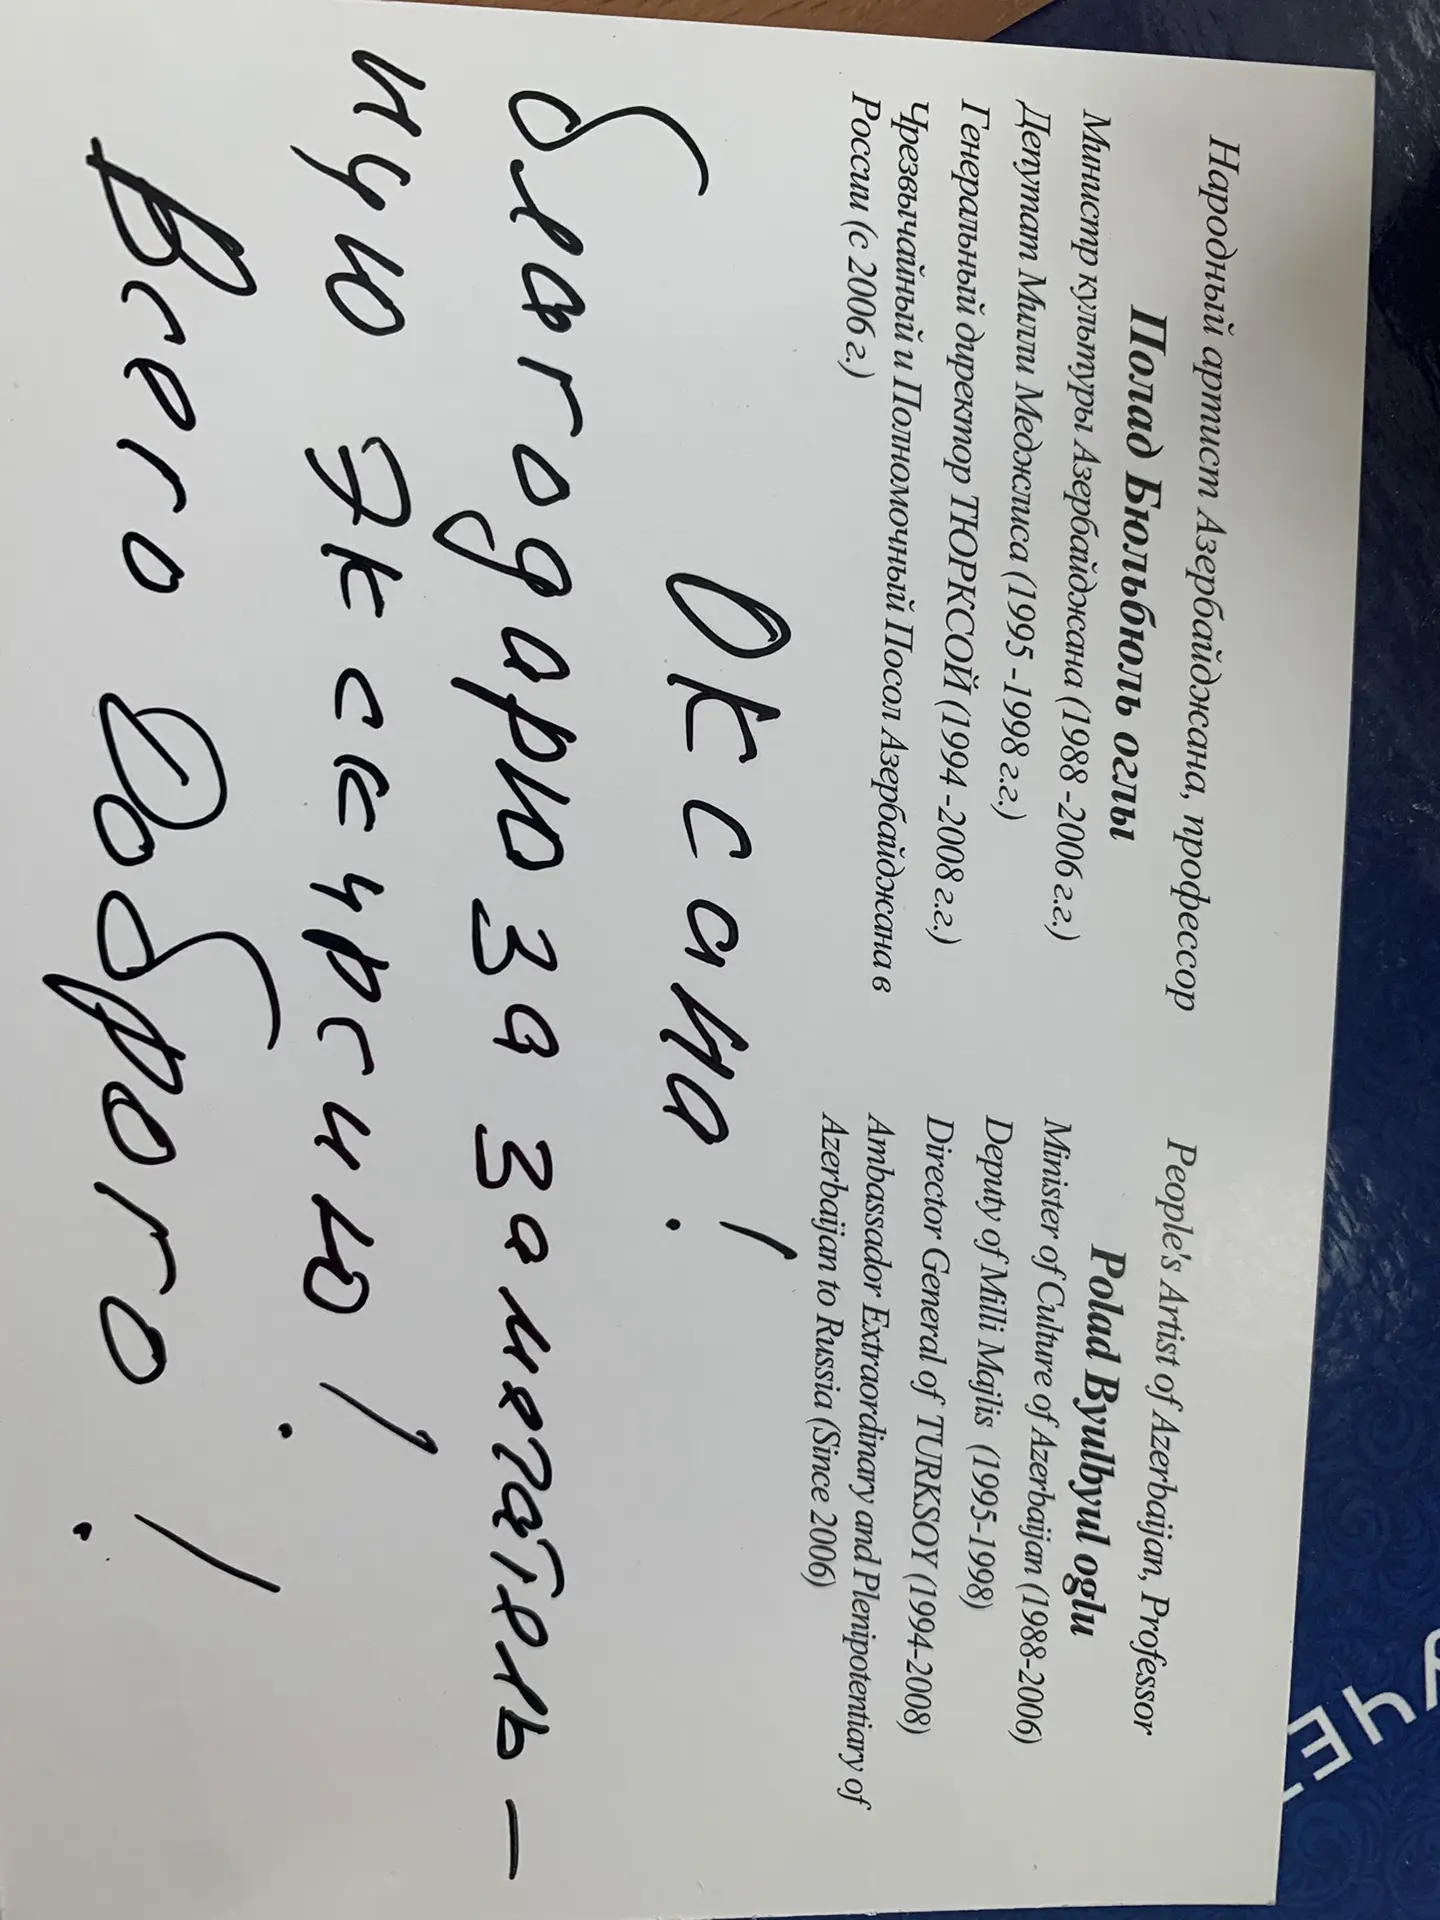 Народный артист Азербайджана, профессор
Полад Бюльбюль оглы
Министр культуры Азербайджана (1988 -2006 г.г.)
Депутат Милли Меджлиса (1995 -1998 г.г.)
Генеральный директор ТЮРКСОЙ (1994 -2008 г.г.)
Чрезвычайный и Полномочный Посол Азербайджана в
России (с 2006 г.)
People's Artist of Azerbaijan, Professor
Polad Byulbyul oglu
Minister of Culture of Azerbaijan (1988-2006)
Deputy of Milli Majlis (1995-1998)
Director General of TURKSOY (1994-2008)
Ambassador Extraordinary and Plenipotentiary of
Azerbaijan to Russia (Since 2006)
Оксана!
благодарю за замечатель-
ную экскурсию!
Всего доброго!